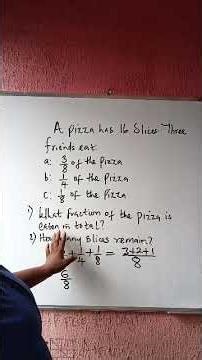 A pizza has 16 Slices Three
friends eat
a: 3/8 of the pizza
b: 1/4 of the Pizza
c: 1/8 of the Pizza
1) What fraction of the pizza is
eaten in total?
2) How many slices remain?
+ 1/4 + 1/8 = 3+2+1/8
6/8